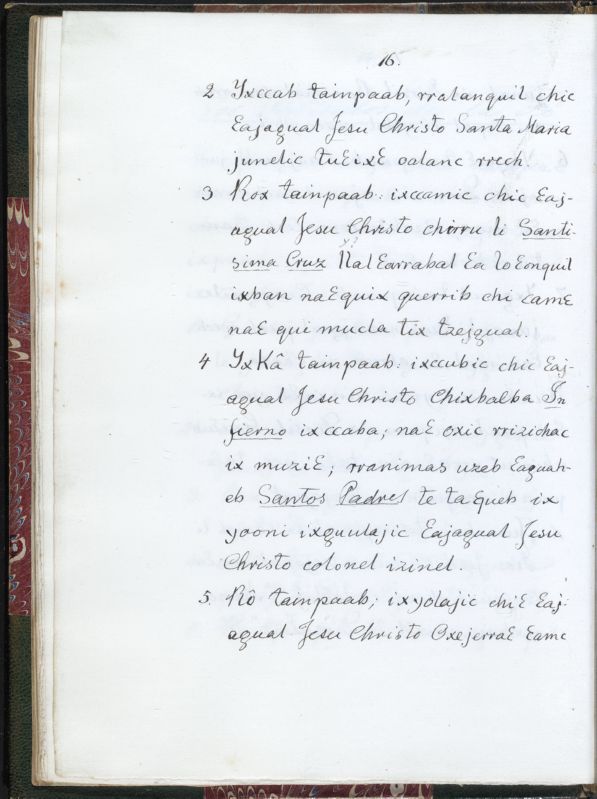 16.
2 Yxccab tainpaab, rralanquil chic
Eajagual Jesu Christo Santa Maria
junelic tuƐixƐ oalanc rrech.
3 Rox tainpaab: ixccamic chic Eaj-
agual Jesu Christo chirru li Santi-
sima Cruz Nal Earrabal Ea loEonquil
y?
ixban naƐquix querrib chi camƐ
naƐ qui mucla tix tzejgual.
4 YxKâ tainpaab: ixccubic chic Eaj-
agual Jesu Christo Chixbalba In
fierno ixccaba; naƐ oxic rrizichac
ix muziƐ; rranimas uzeb Eaguah-
eb Santos Padres te taqueb ix
yooni ixguulajic Eajagual Jesu
Christo colonel izinel.
5. Rô tainpaab; ixyolajic chiƐ Eaj-
agual Jesu Christo OxejerraƐ Eame